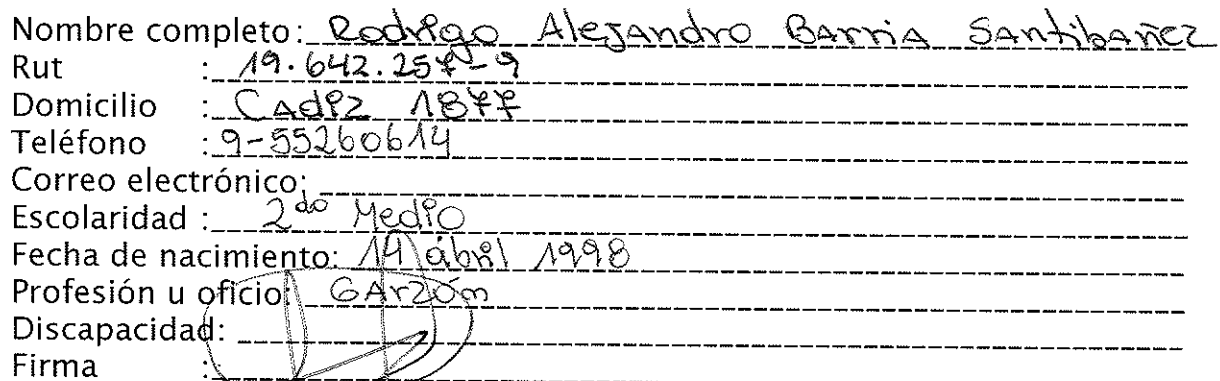 Nombre completo: Rodrigo Alejandro Barria Santibañez
Rut : 19.642.257-9
Domicilio : Cadiz 1877
Teléfono : 9-55260614
Correo electrónico:
Escolaridad : 2do Medio
Fecha de nacimiento: 14 abril 1998
Profesión u oficio: Garzón
Discapacidad:
Firma :